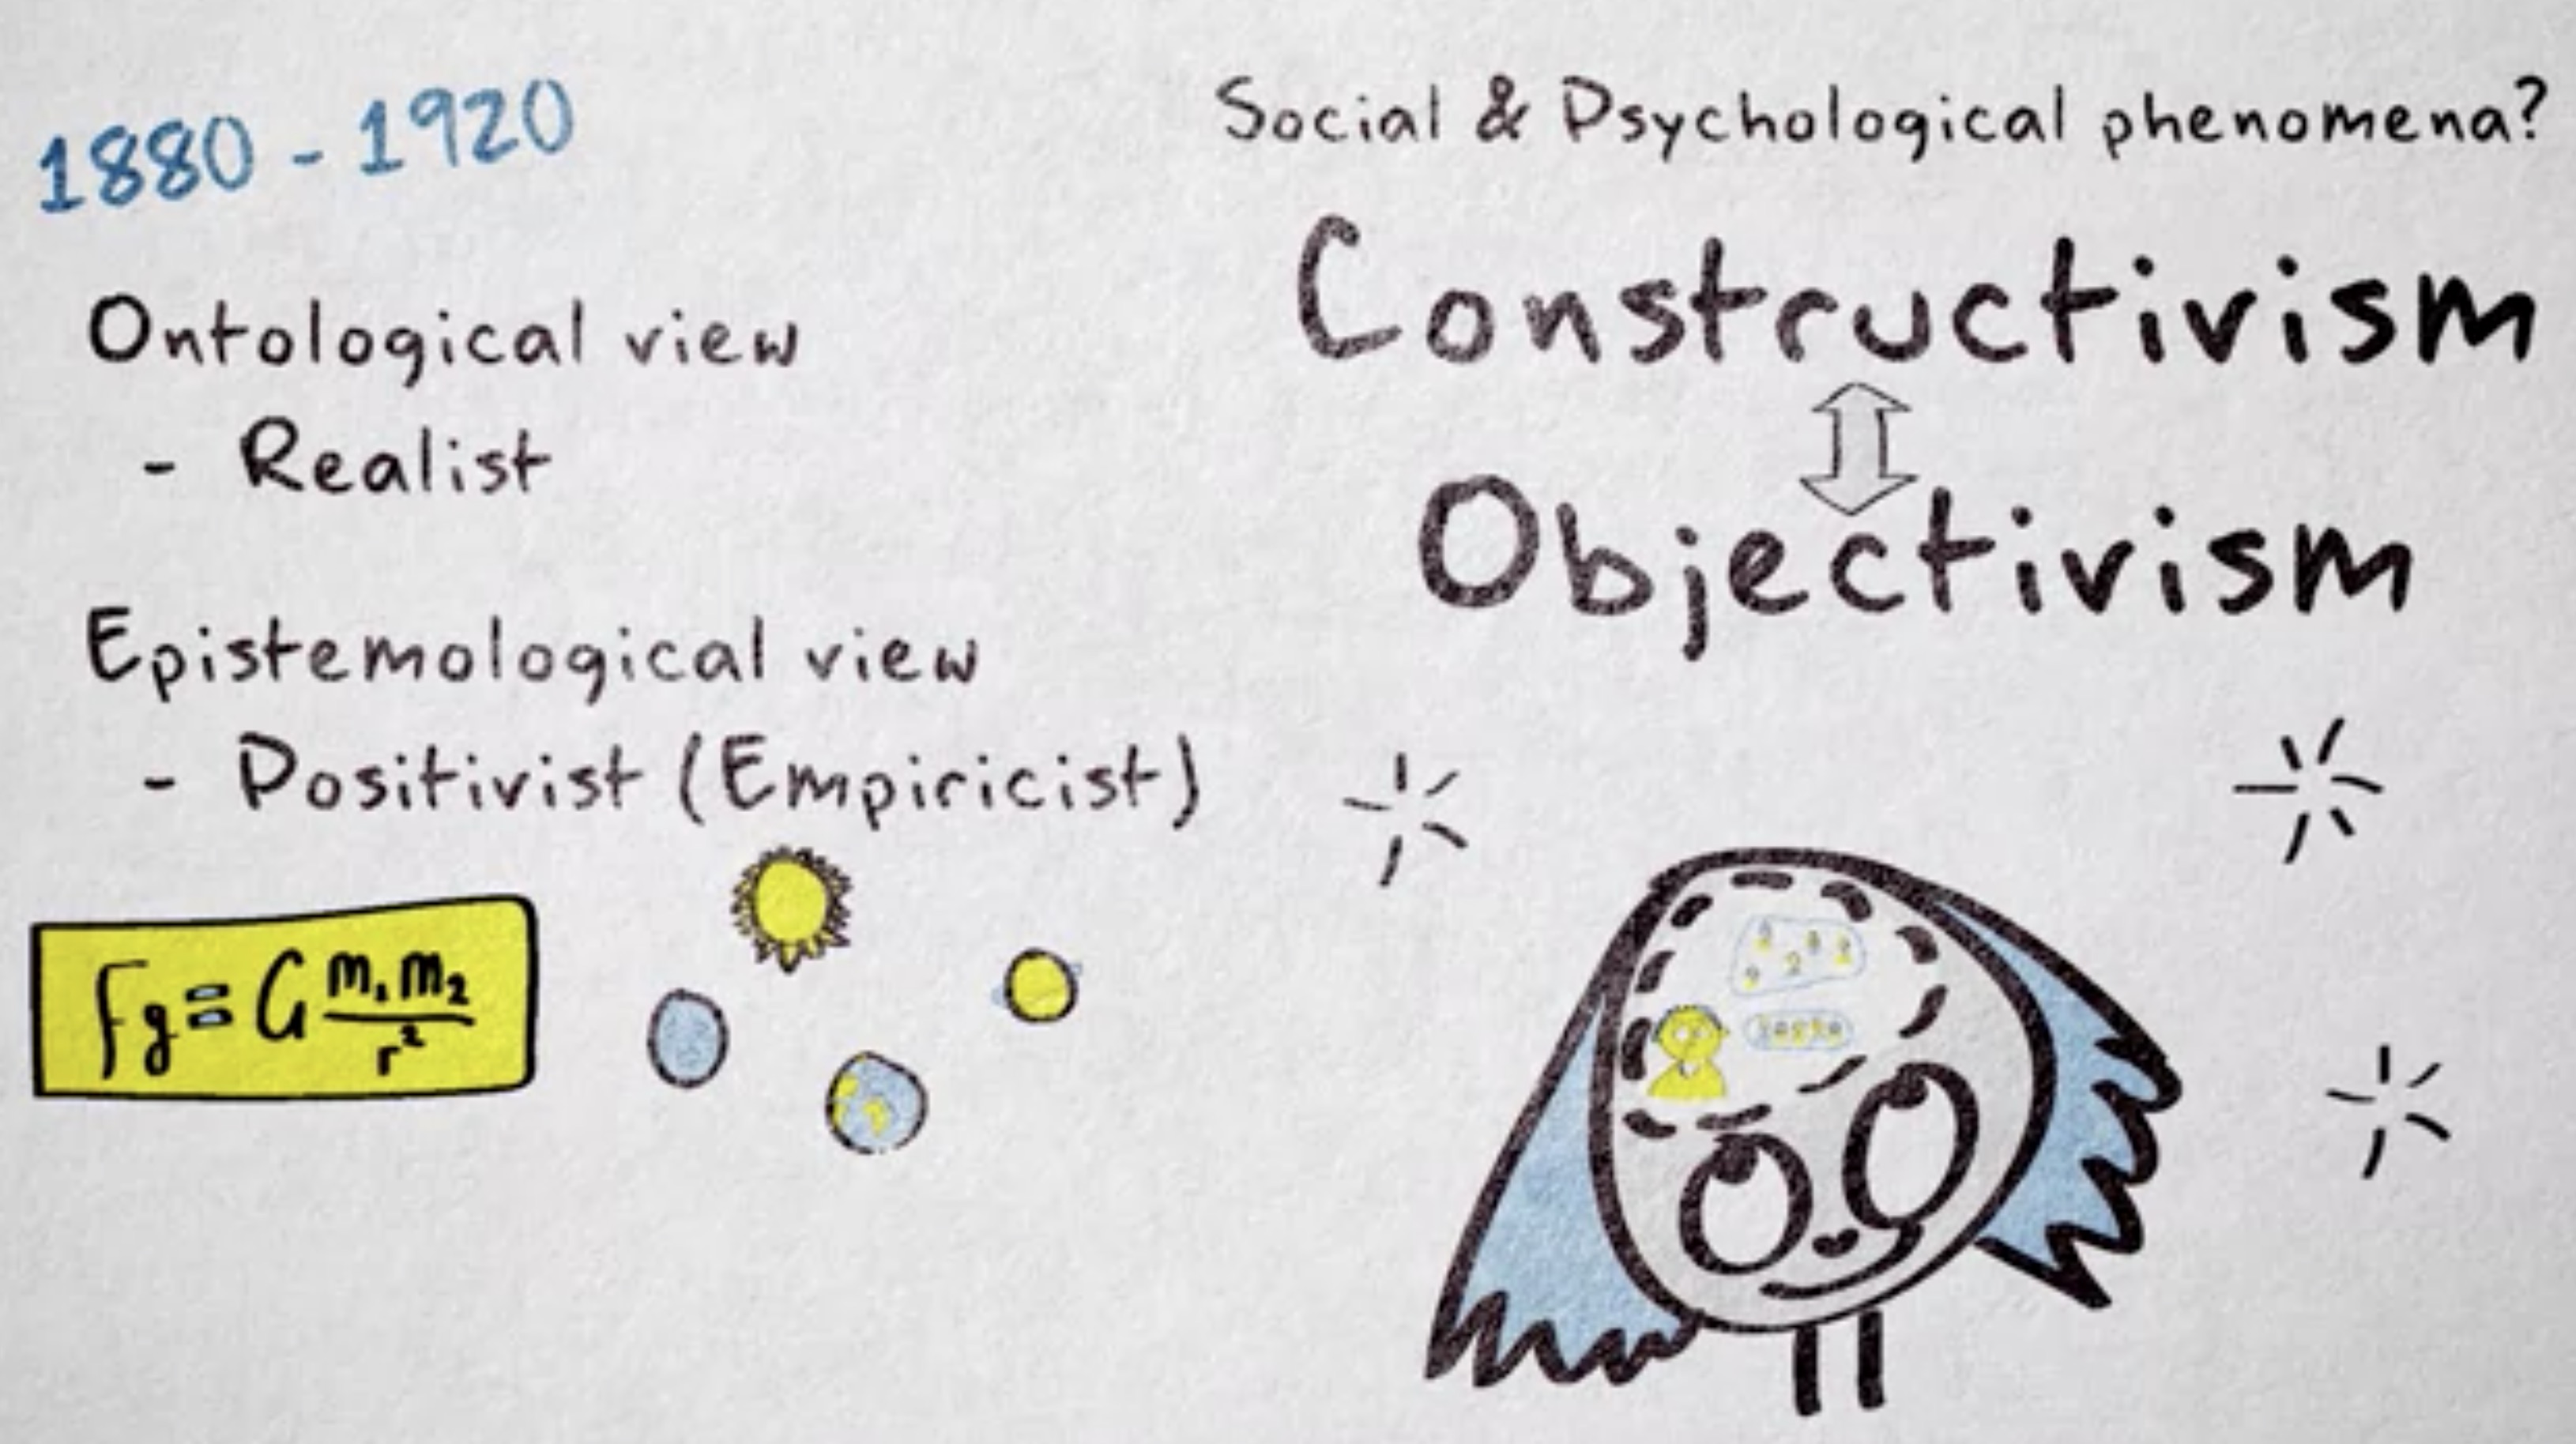 1880 - 1920
Ontological view
- Realist
Epistemological view
- Positivist (Empiricist)
Fg = G m₁ m₂ / r²
Social & Psychological phenomena?
Constructivism
Objectivism